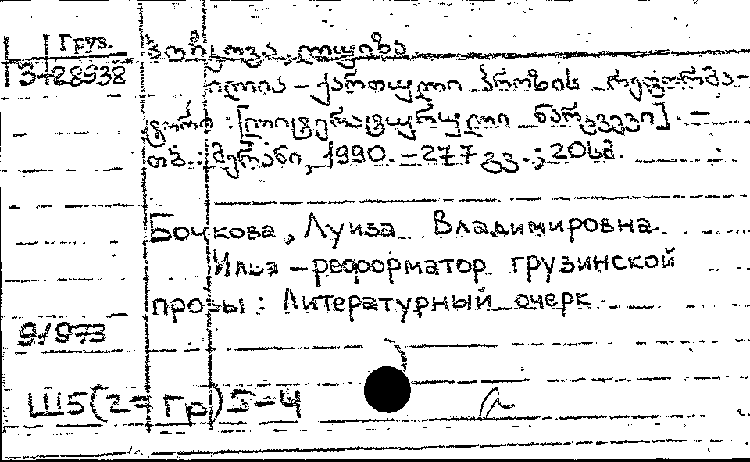 Груз.
3-28938
ბოჩკოვა, ლუიზა
ილია - ქართული პროზის რეფორმა-
ტორი : [ლიტერატურული ნარკვევი]. -
თბ. : მერანი, 1990. - 277 გვ. ; 20 სმ.
Бочкова, Луиза Владимировна.
Илья - реформатор грузинской
прозы : Литературный очерк
91973
Ш5(2=Гр)5-4